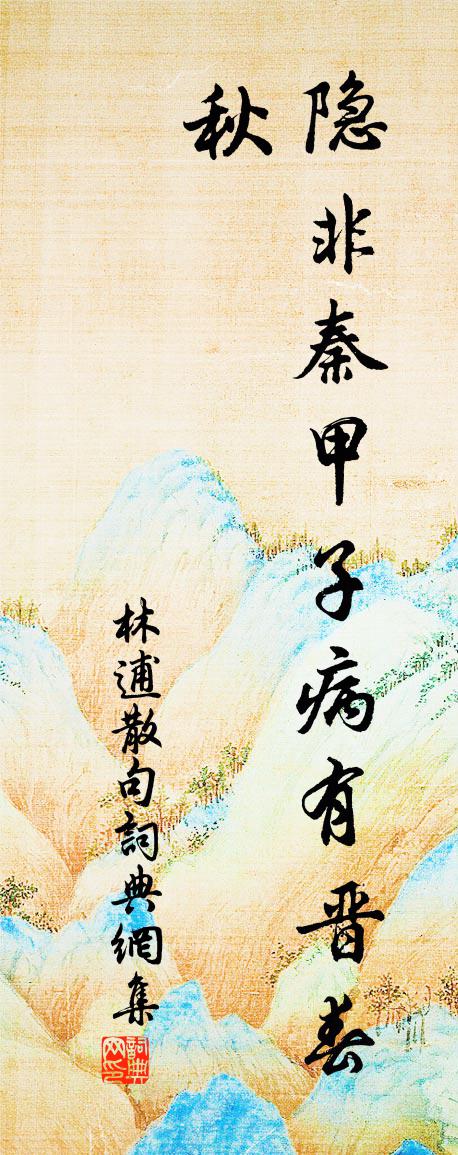 隐非秦甲子病有晋春
秋
林逋散句詞典網集
詞典
网印